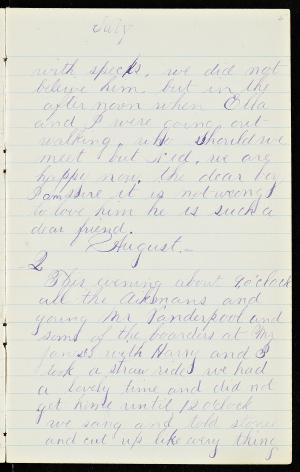 July
with specks. we did not
believe him. but in the
after noon when Ella
and I were going out
walking, who should we
meet but Ned. we are
happy now. the dear boy
I am sure it is not wrong
to love him he is such a
dear friend.
August.
2
This evening about 9 o'clock
all the and
young Mr Vanderpool and
some of the boarders at Mr
with Harry and I
took a straw ride, we had
a lovely time and did not
get home until 12 o'clock
we sang and told stories
and cut up like every thing